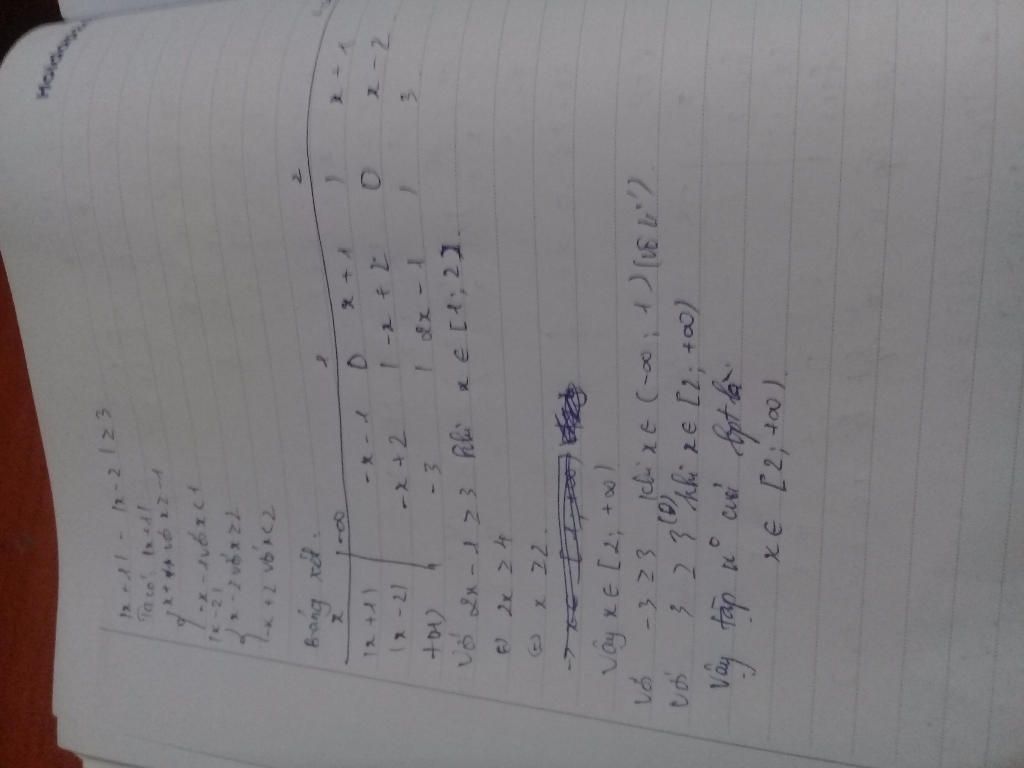 |x + 1| - |x - 2| ≥ 3
Ta có: |x + 1|
x + 1 với x ≥ -1
-x - 1 với x < 1
|x - 2|
x - 2 với x ≥ 2
-x + 2 với x < 2
Bảng xét:
x -∞ 1 2
|x + 1| -x - 1 0 x + 1 | x + 1
|x - 2| -x + 2 | -x + 2 0 x - 2
f(x) -3 | 2x - 1 | 3
Với 2x - 1 ≥ 3 khi x ∈ [1; 2]
⇔ 2x ≥ 4
⇔ x ≥ 2
Vậy x ∈ [2; +∞)
Với -3 ≥ 3 khi x ∈ (-∞; 1)
Với 3 ≥ 3 khi x ∈ [2; +∞)
Vậy tập n° của bpt là
x ∈ [2; +∞)